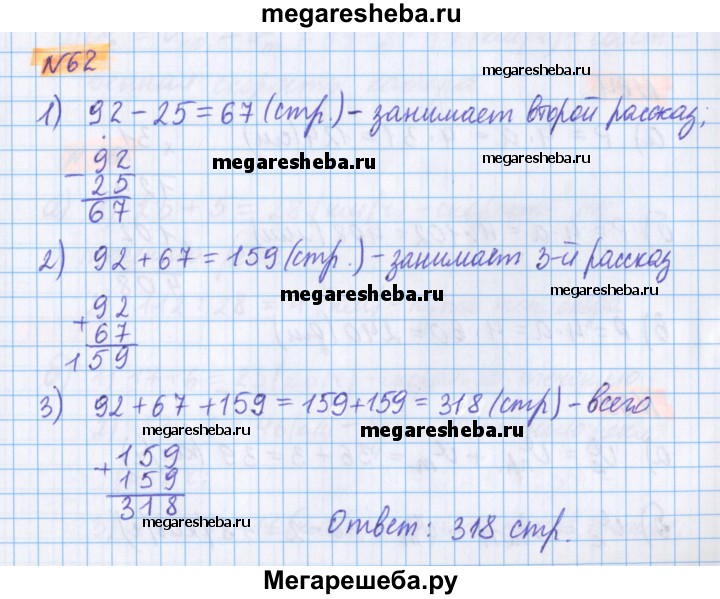 megaresheba.ru
№62
megaresheba.ru
1) 92 - 25 = 67 (стр.) - занимает второй рассказ;
- 92
25
67
megaresheba.ru
megaresheba.ru
2) 92 + 67 = 159 (стр.) - занимает 3-й рассказ
megaresheba.ru
megaresheba.ru
+ 92
67
159
3) 92 + 67 + 159 = 159 + 159 = 318 (стр) - всего
megaresheba.ru
megaresheba.ru
+ 159
159
318
megaresheba.ru
megaresheba.ru
Ответ: 318 стр.
Мегарешеба.ру